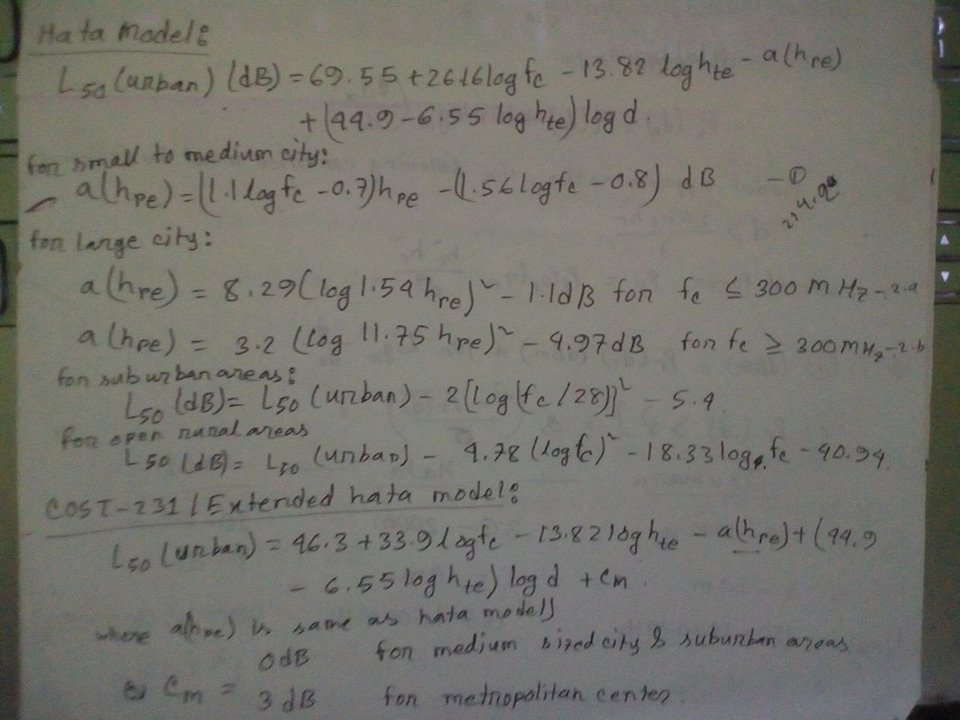 Hata model:
L50 (urban) (dB) = 69.55 + 26.16 log fc - 13.82 log hte - a(hre)
+ (44.9 - 6.55 log hte) log d.
for small to medium city:
a(hre) = (1.1 log fc - 0.7) hre - (1.56 log fc - 0.8) dB - ①
for large city:
a(hre) = 8.29 (log 1.54 hre)² - 1.1 dB for fc ≤ 300 MHz - 2.a
a(hre) = 3.2 (log 11.75 hre)² - 4.97 dB for fc ≥ 300 MHz - 2.b
for suburban areas:
L50 (dB) = L50 (urban) - 2 [log (fc / 28)]² - 5.4
for open rural areas
L50 (dB) = L50 (urban) - 4.78 (log fc)² - 18.33 log fc - 40.94
COST-231 / Extended hata model:
L50 (urban) = 46.3 + 33.9 log fc - 13.82 log hte - a(hre) + (44.9
- 6.55 log hte) log d + Cm.
where a(hre) is same as hata model
0 dB for medium sized city & suburban areas
Cm =
3 dB for metropolitan center.